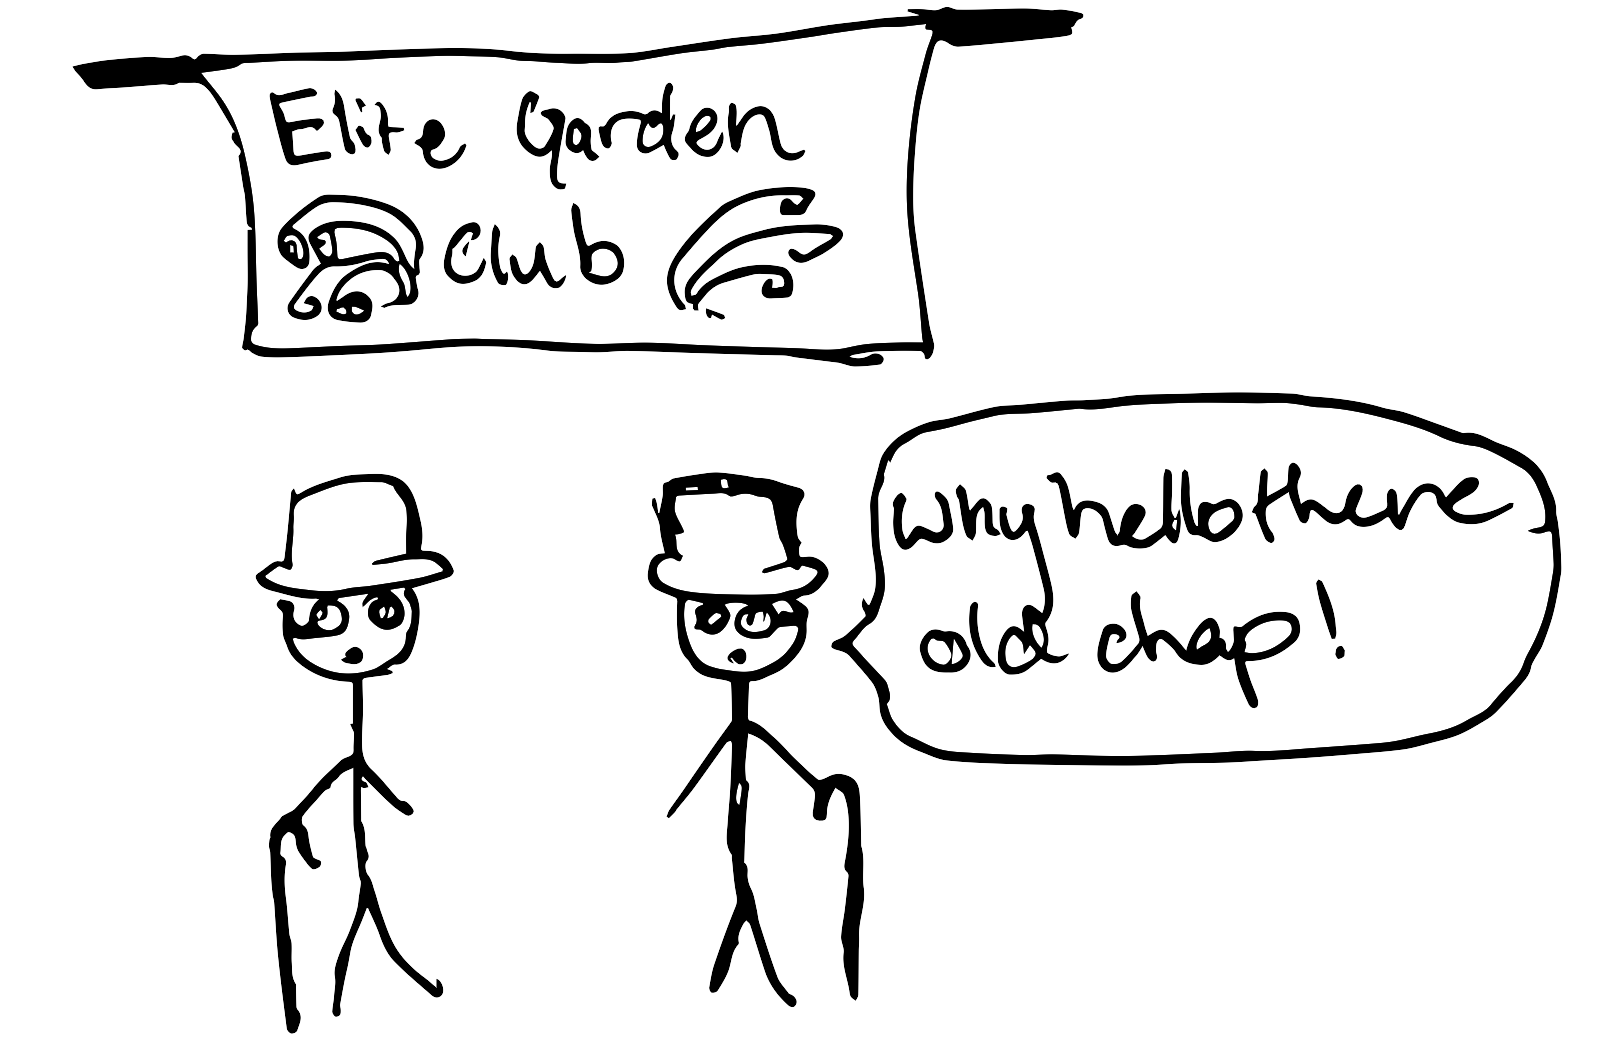 Elite Garden
Club
why hello there
old chap!